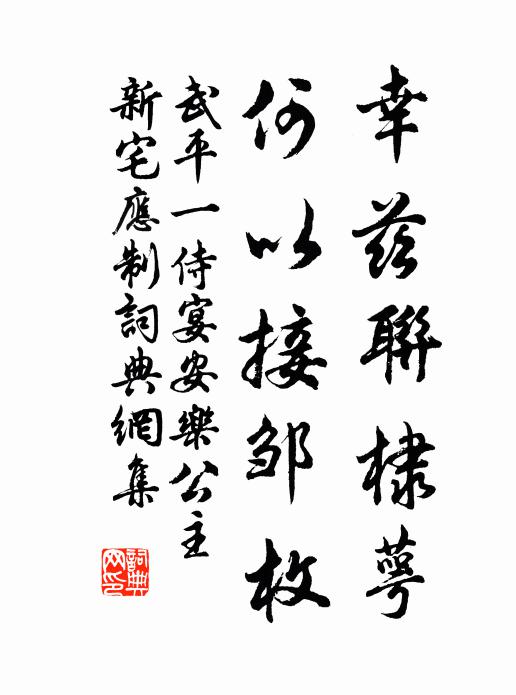 幸茲聯棣萼
何以接邹枚
武平一侍宴安樂公主
新宅應制詞典網集
詞典
网印